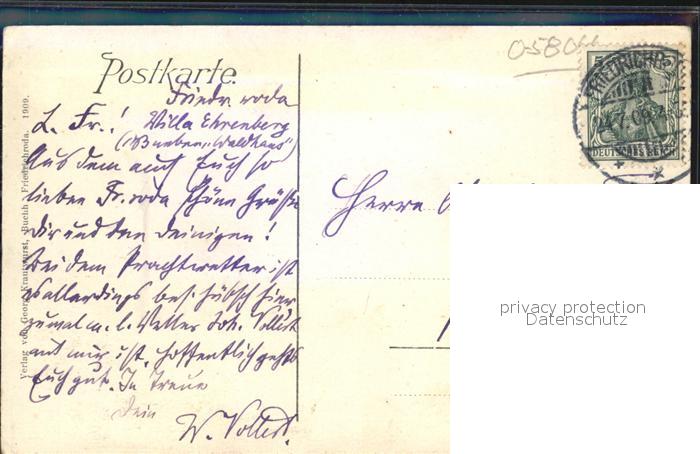 0-5800
Postkarte.
FRIEDRICHR
DEUTSCHES REICH
Friedr. roda
Villa Ehrenberg
L. Fr.!
( neben „Waldhaus“)
Aus dem auch Euch so
lieben Fr. roda schöne Grüße
Dir und den Deinigen!
Bei dem Prachtwetter ist
es allerdings bes. hübsch hier
zumal m. l. Vetter Joh. Vollert
mit mir ist. Hoffentlich gehts
Euch gut. In Treue
Dein
W. Vollert.
Herrn
Verlag von Georg Krautwurst, Buchh., Friedrichroda. 1909.
privacy protection
Datenschutz